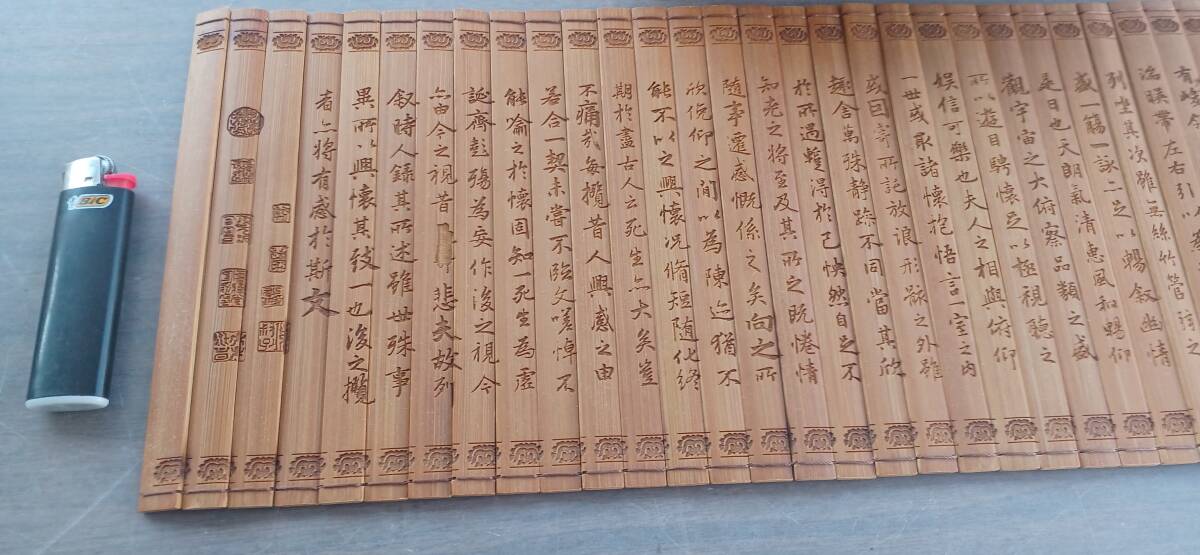 湍暎帶左右引以
列坐其次雖無絲竹管弦之
盛一觴一詠亦足以暢敘幽情
是日也天朗氣清惠風和暢仰
觀宇宙之大俯察品類之盛
所以遊目騁懷足以極視聽之
娛信可樂也夫人之相與俯仰
一世或取諸懷抱悟言一室之內
或因寄所託放浪形骸之外雖
趣舍萬殊靜躁不同當其欣
於所遇蹔得於己怏然自足不
知老之將至及其所之既惓情
隨事遷感慨係之矣向之所
欣俛仰之間以為陳迹猶不
能不以之興懷況脩短隨化終
期於盡古人云死生亦大矣豈
不痛哉每攬昔人興感之由
若合一契未嘗不臨文嗟悼不
能喻之於懷固知一死生為虛
誕齊彭殤為妄作後之視今
亦由今之視昔悲夫故列
叙時人錄其所述雖世殊事
異所以興懷其致一也後之攬
者亦將有感於斯文
BIC